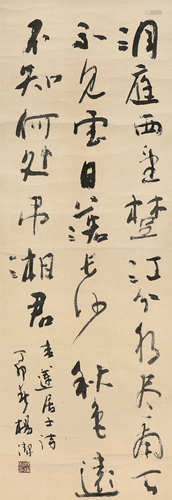 洞庭西望楚江分水尽南天
不见云日落长沙秋色远
不知何处吊湘君
青莲居士诗
丁卯 杨